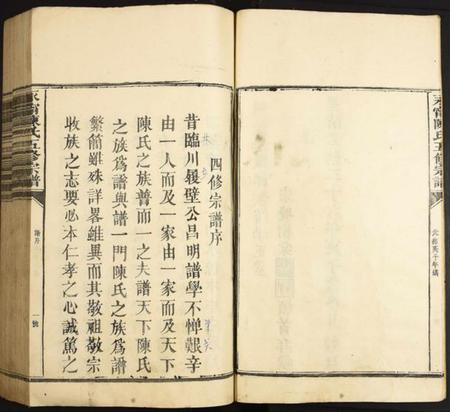 永甯陳氏五修宗譜
四修宗譜序
昔臨川履壁公昌明譜學不憚艱辛
由一人而及一家由一家而及天下
陳氏之族普而一之夫譜天下陳氏
之族為譜與譜一門陳氏之族為譜
繁簡雖殊詳畧雖異而其敬祖敬宗
收族之志要必本仁孝之心誠篤之
永甯陳氏五修宗譜
譜序
一號